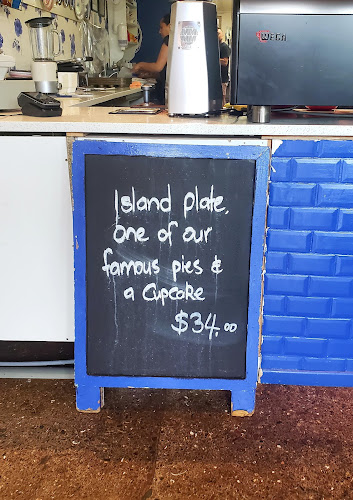 WEGA
Island plate,
One of our
famous pies &
a Cupcake
$34.00